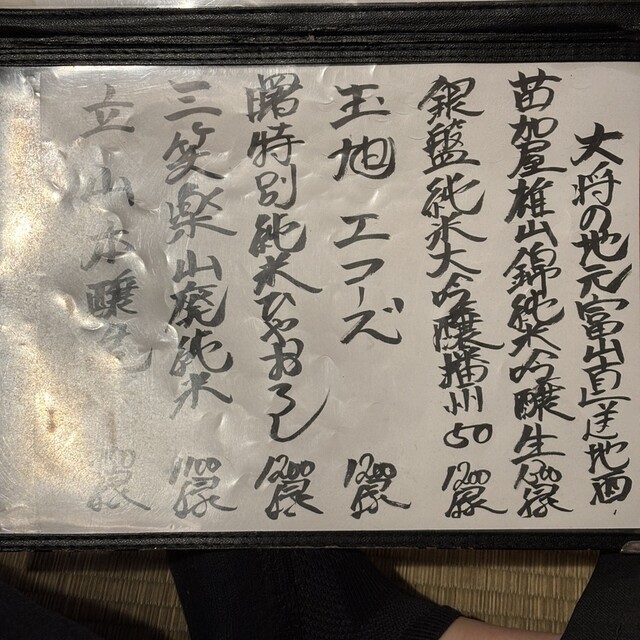 大将の地元富山直送地酒
苗加屋雄山錦純米吟醸生1200縁
銀盤純米大吟醸播州50 1200縁
玉旭 エコーズ 1200縁
曙特別純米ひやおろし 1200縁
三笑楽山廃純米 1100縁
立山本醸造 縁